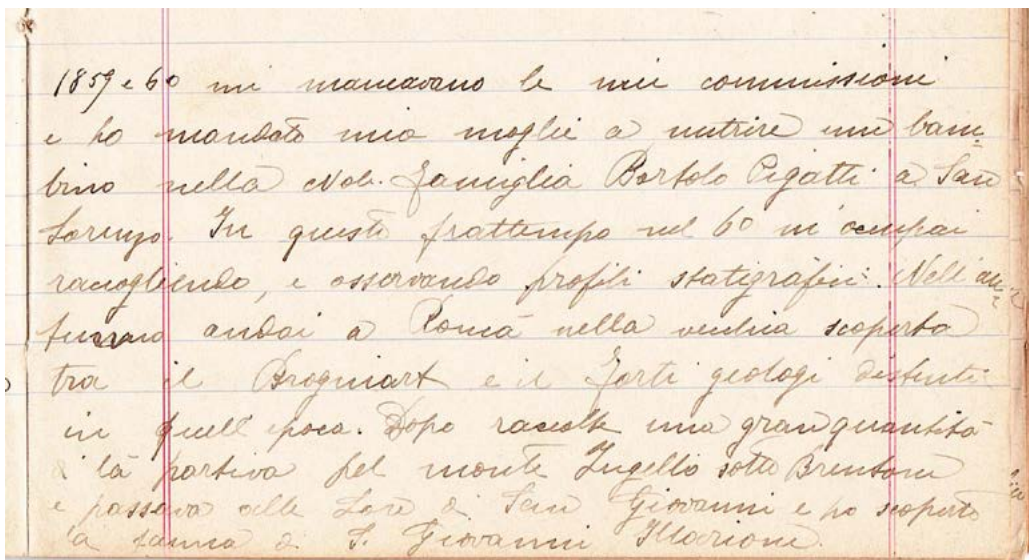 1859 e 60 mi mancavano le mie commissioni
e ho mandato mia moglie a nutrire un bam-
bino nella Nob. Famiglia Bortolo Pigatti a San
Lorenzo. In questo frattempo nel 60 m'occupai
raccogliendo, e osservando profili statigrafici. Nell'au-
tunno andai a Roncà nella vechia scoperta
tra il Brogniart e il Forti geologi distinti
in quell'epoca. Dopo raccolte una gran quantità
di là partiva pel monte Zugello sotto Brentone
e passava alle Lore di San Giovanni e ho scoperto
la fauna di S. Giovanni Illarione.